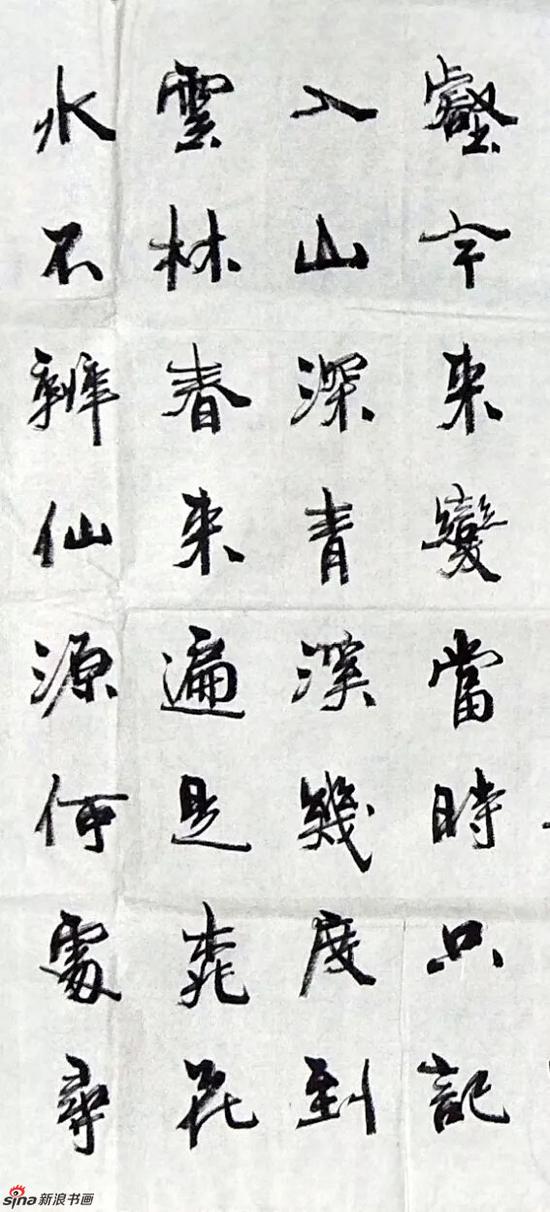 壑今来變當時只記
入山深青溪幾度到
雲林春来遍是桃花
水不辨仙源何處尋
sina新浪书画